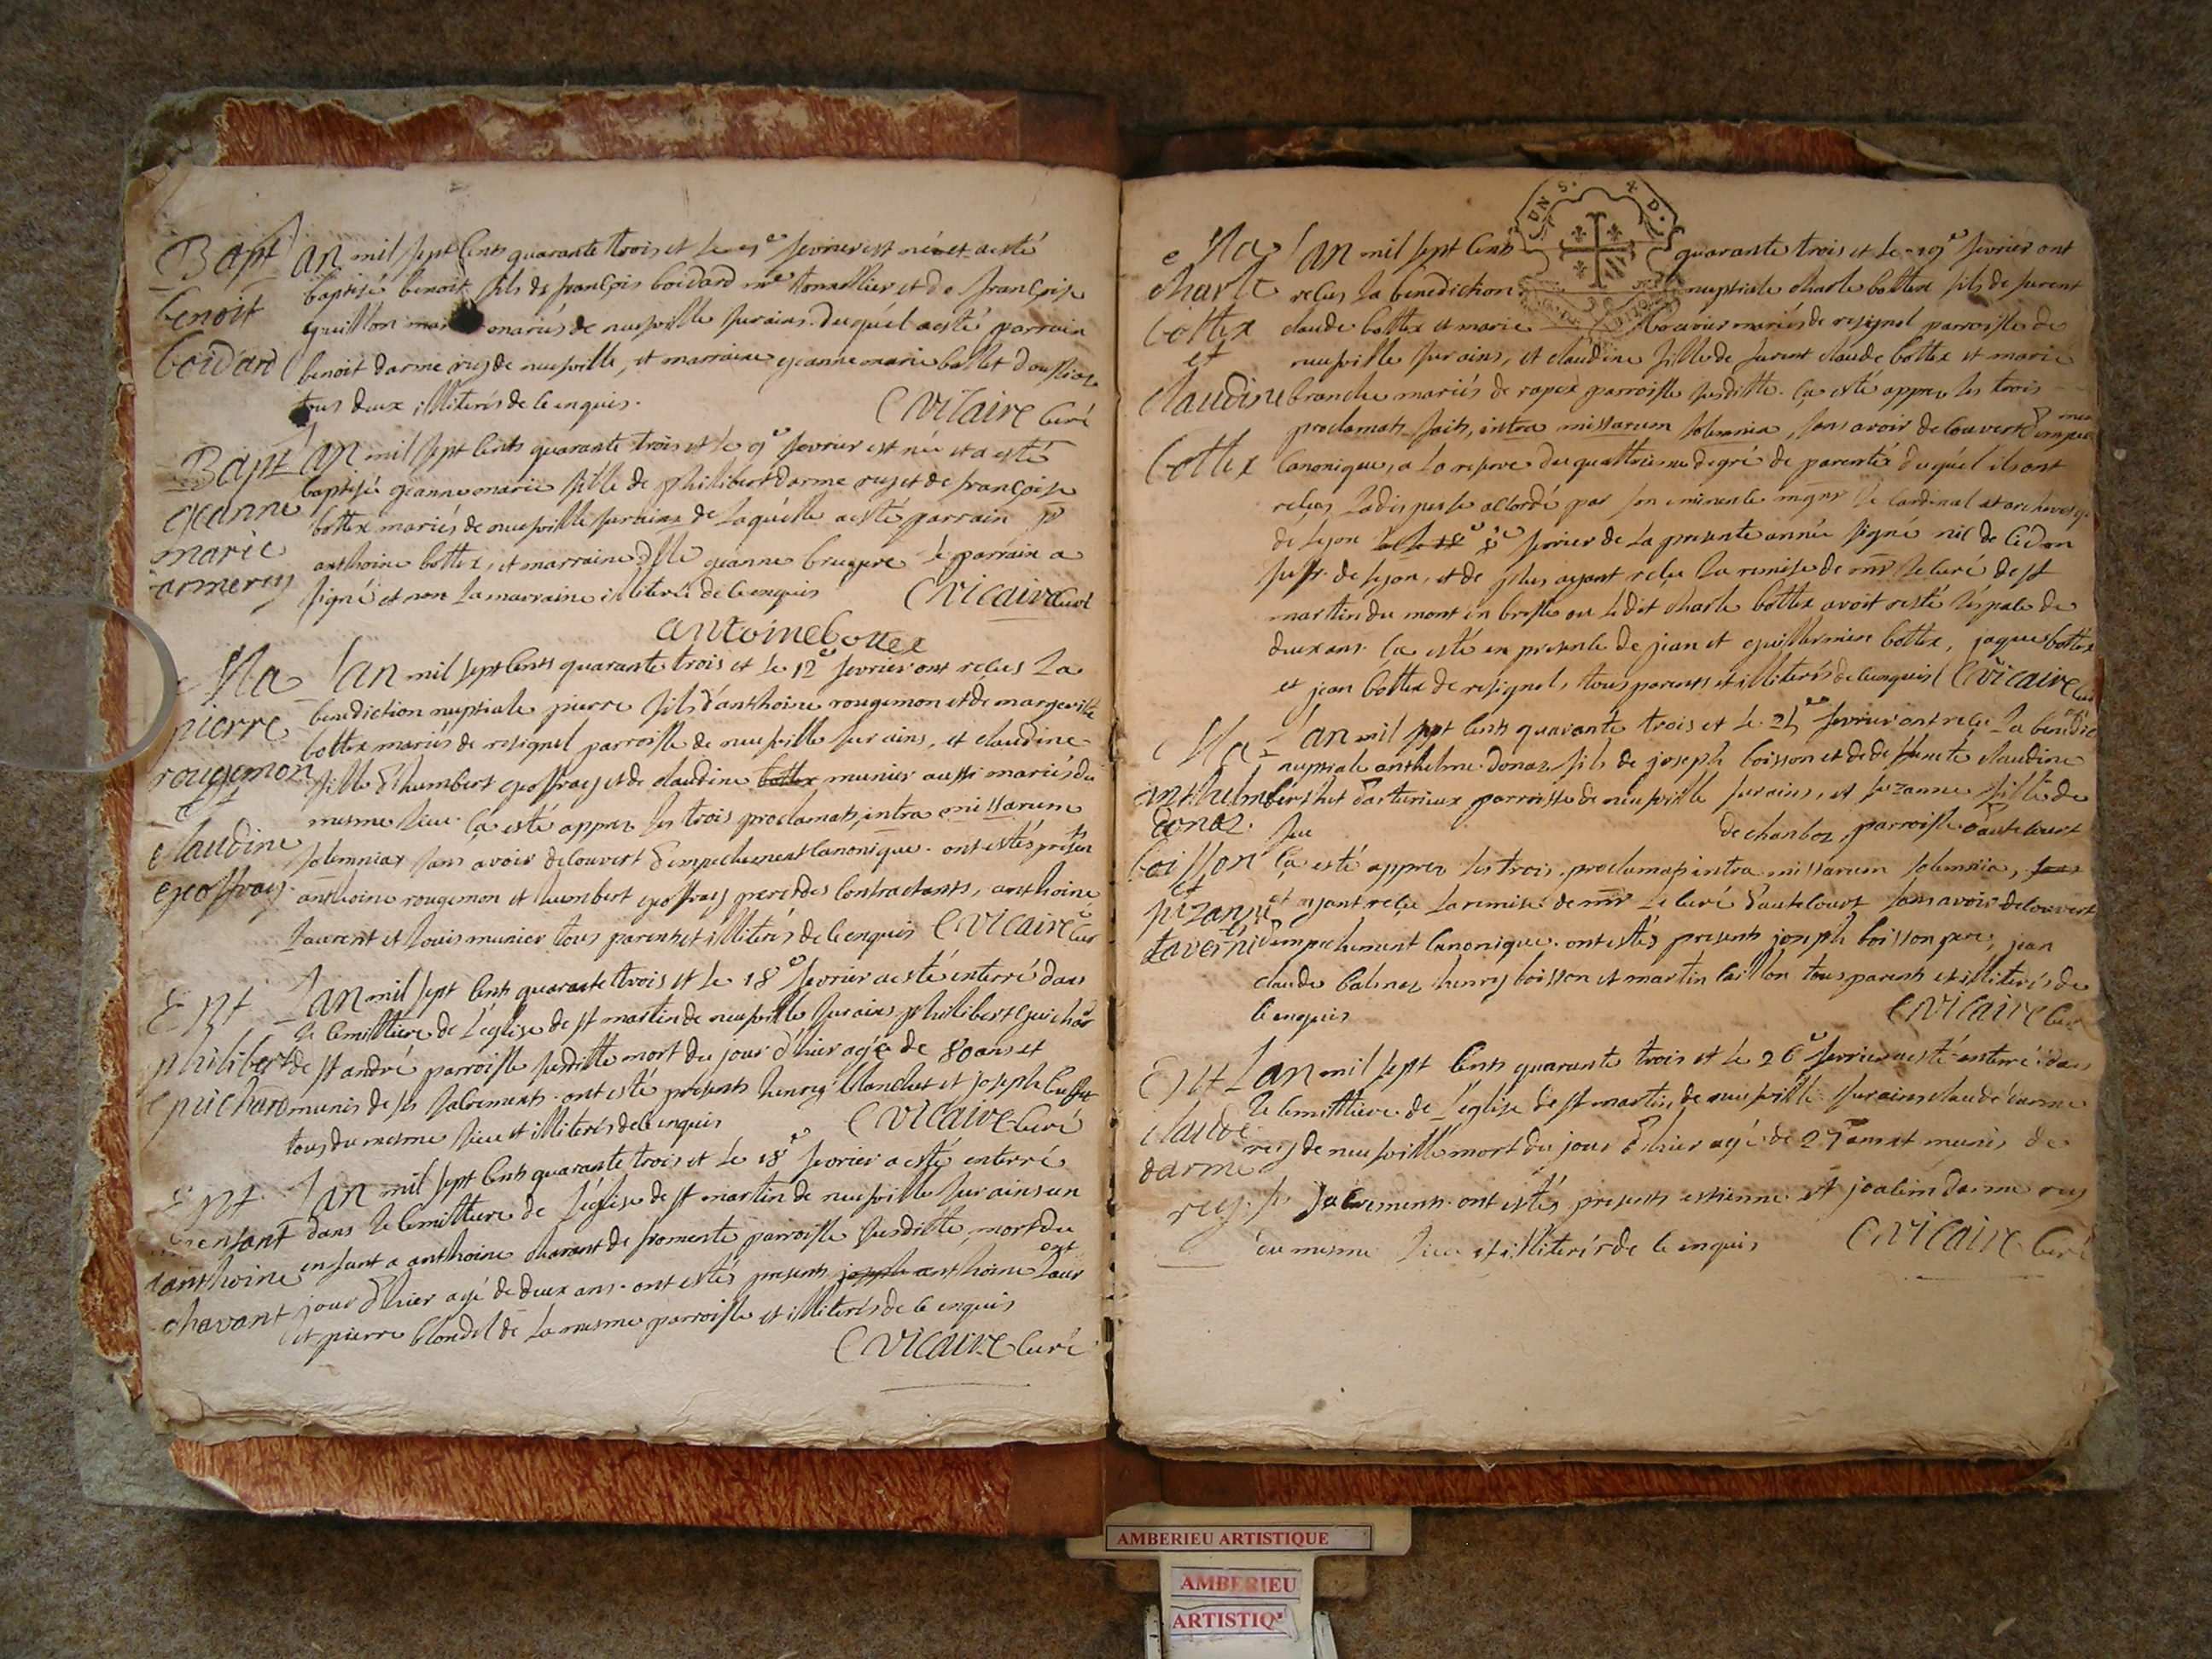 Bapt
benoit
boidard
L'an mil sept cents quarante trois et le fevrier est né et a esté
baptisé benoit fils de françois boidard me tonnellier et de françoise
guillon mariés de neufville sur ains. duquel a esté parrain
benoit darmerey de neufville, et marraine jeanne marie ballet
tous deux illiterés de ce enquis.
C vicaire curé
Bapt
jeanne
marie
darmerey
L'an mil sept cents quarante trois et le 9e fevrier est née et a esté
baptisée jeanne marie fille de philibert darmerey et de françoise
bottex mariés de neufville sur ains de laquelle a esté parrain sr
anthoine bottex, et marraine dlle jeanne bruyere le parrain a
signé et non la marraine illiterée de ce enquis
C vicaire curé
antoine bottex
Ma
pierre
rougemon
et
claudine
geoffray
L'an mil sept cents quarante trois et le 12e fevrier ont reçus la
benediction nuptiale pierre fils d'anthoine rougemon et de margeritte
bottex mariés de resignel parroisse de neufville sur ains, et claudine
fille d'humbert geoffray et de claudine bottex munier aussi mariés du
mesme lieu. ça esté apprez les trois proclamats, intra missarum
solemnia sans avoir decouvert d'empechement canonique. ont estés présen
anthoine rougemon et humbert geoffray peres des contractants, anthoine
laurent et louis munier tous parents et illiterés de ce enquis C vicaire cur
Ent
philibert
guichard
L'an mil sept cents quarante trois et le 18e fevrier a esté enterré dans
le cemittiere de l'eglise de st martin de neufville sur ains philibert guichar
de st andré parroisse susditte mort du jour d'hier agé de 80 ans et
munis de ses sacrements. ont esté présents henry blanchet et joseph
tous du mesme lieu et illiterés de ce enquis
C vicaire curé
Ent
enfant
d'anthoine
chavant
L'an mil sept cents quarante trois et le 18e fevrier a esté enterré
dans le cemittiere de l'eglise de st martin de neufville sur ains un
enfant a anthoine chavant de fromente parroisse susditte, mort du
jour d'hier agé de deux ans. ont estés presents joseph anthoine laurent
et pierre blondel de la mesme parroisse et illiterés de ce enquis
C vicaire curé
UN S. X D.
Ma
charle
bottex
et
claudine
bottex
L'an mil sept cents quarante trois et le 19e fevrier ont
reçus la benediction nuptiale charle bottex fils de furent
claude bottex et marie bouvier mariés de resignel parroisse de
neufville sur ains, et claudine fille de furent claude bottex et marie
branche mariés de rapex parroisse susditte. ça esté apprez les trois
proclamats faits, intra missarum solemnia, sans avoir decouvert d'empe
canonique, a la reserve du quattrieme degré de parenté duquel ils ont
reçus la dispense accordé par son eminence mgnr le cardinal et archeveq
de lyon le 8e fevrier de la presente année signé nic de
suffr. de lyon, et de plus ayant reçu la remise de mr le curé de st
martin du mont en bresse ou ledit charle bottex avoit resté l'espace de
deux ans. ça esté en presence de jean et guillermin bottex, jaque bottex
et jean bottex de resignel, tous parents et illiterés de ce enquis C vicaire cu
Ma
anthelme
donaz
boisson
et
suzanne
taverni
L'an mil sept cents quarante trois et le fevrier ont reçu la benedic
nuptiale anthelme donaz fils de joseph boisson et de claudine
d'arturieux parroisse de neufville sur ains, et suzanne fille de
feu de chanboz, parroisse d'autecourt
ça esté apprez les trois proclamats intra missarum solemnia,
et ayant reçu la remise de mr le curé d'autecourt sans avoir decouvert
d'empechement canonique. ont estés presents joseph boisson pere, jean
claude henry boisson et martin tous parents et illiterés de
ce enquis
C vicaire cur
Ent
claude
darme
rey
L'an mil sept cents quarante trois et le 26e fevrier a esté enterré dans
le cemittiere de l'eglise de st martin de neufville sur ains claude darme
rey de neufville mort du jour d'hier agé de ans et munis de
ses sacrements. ont estés presents estienne et joachim darmerey
du mesme lieu et illiterés de ce enquis
C vicaire curé
AMBERIEU ARTISTIQUE
AMBERIEU
ARTISTIQ